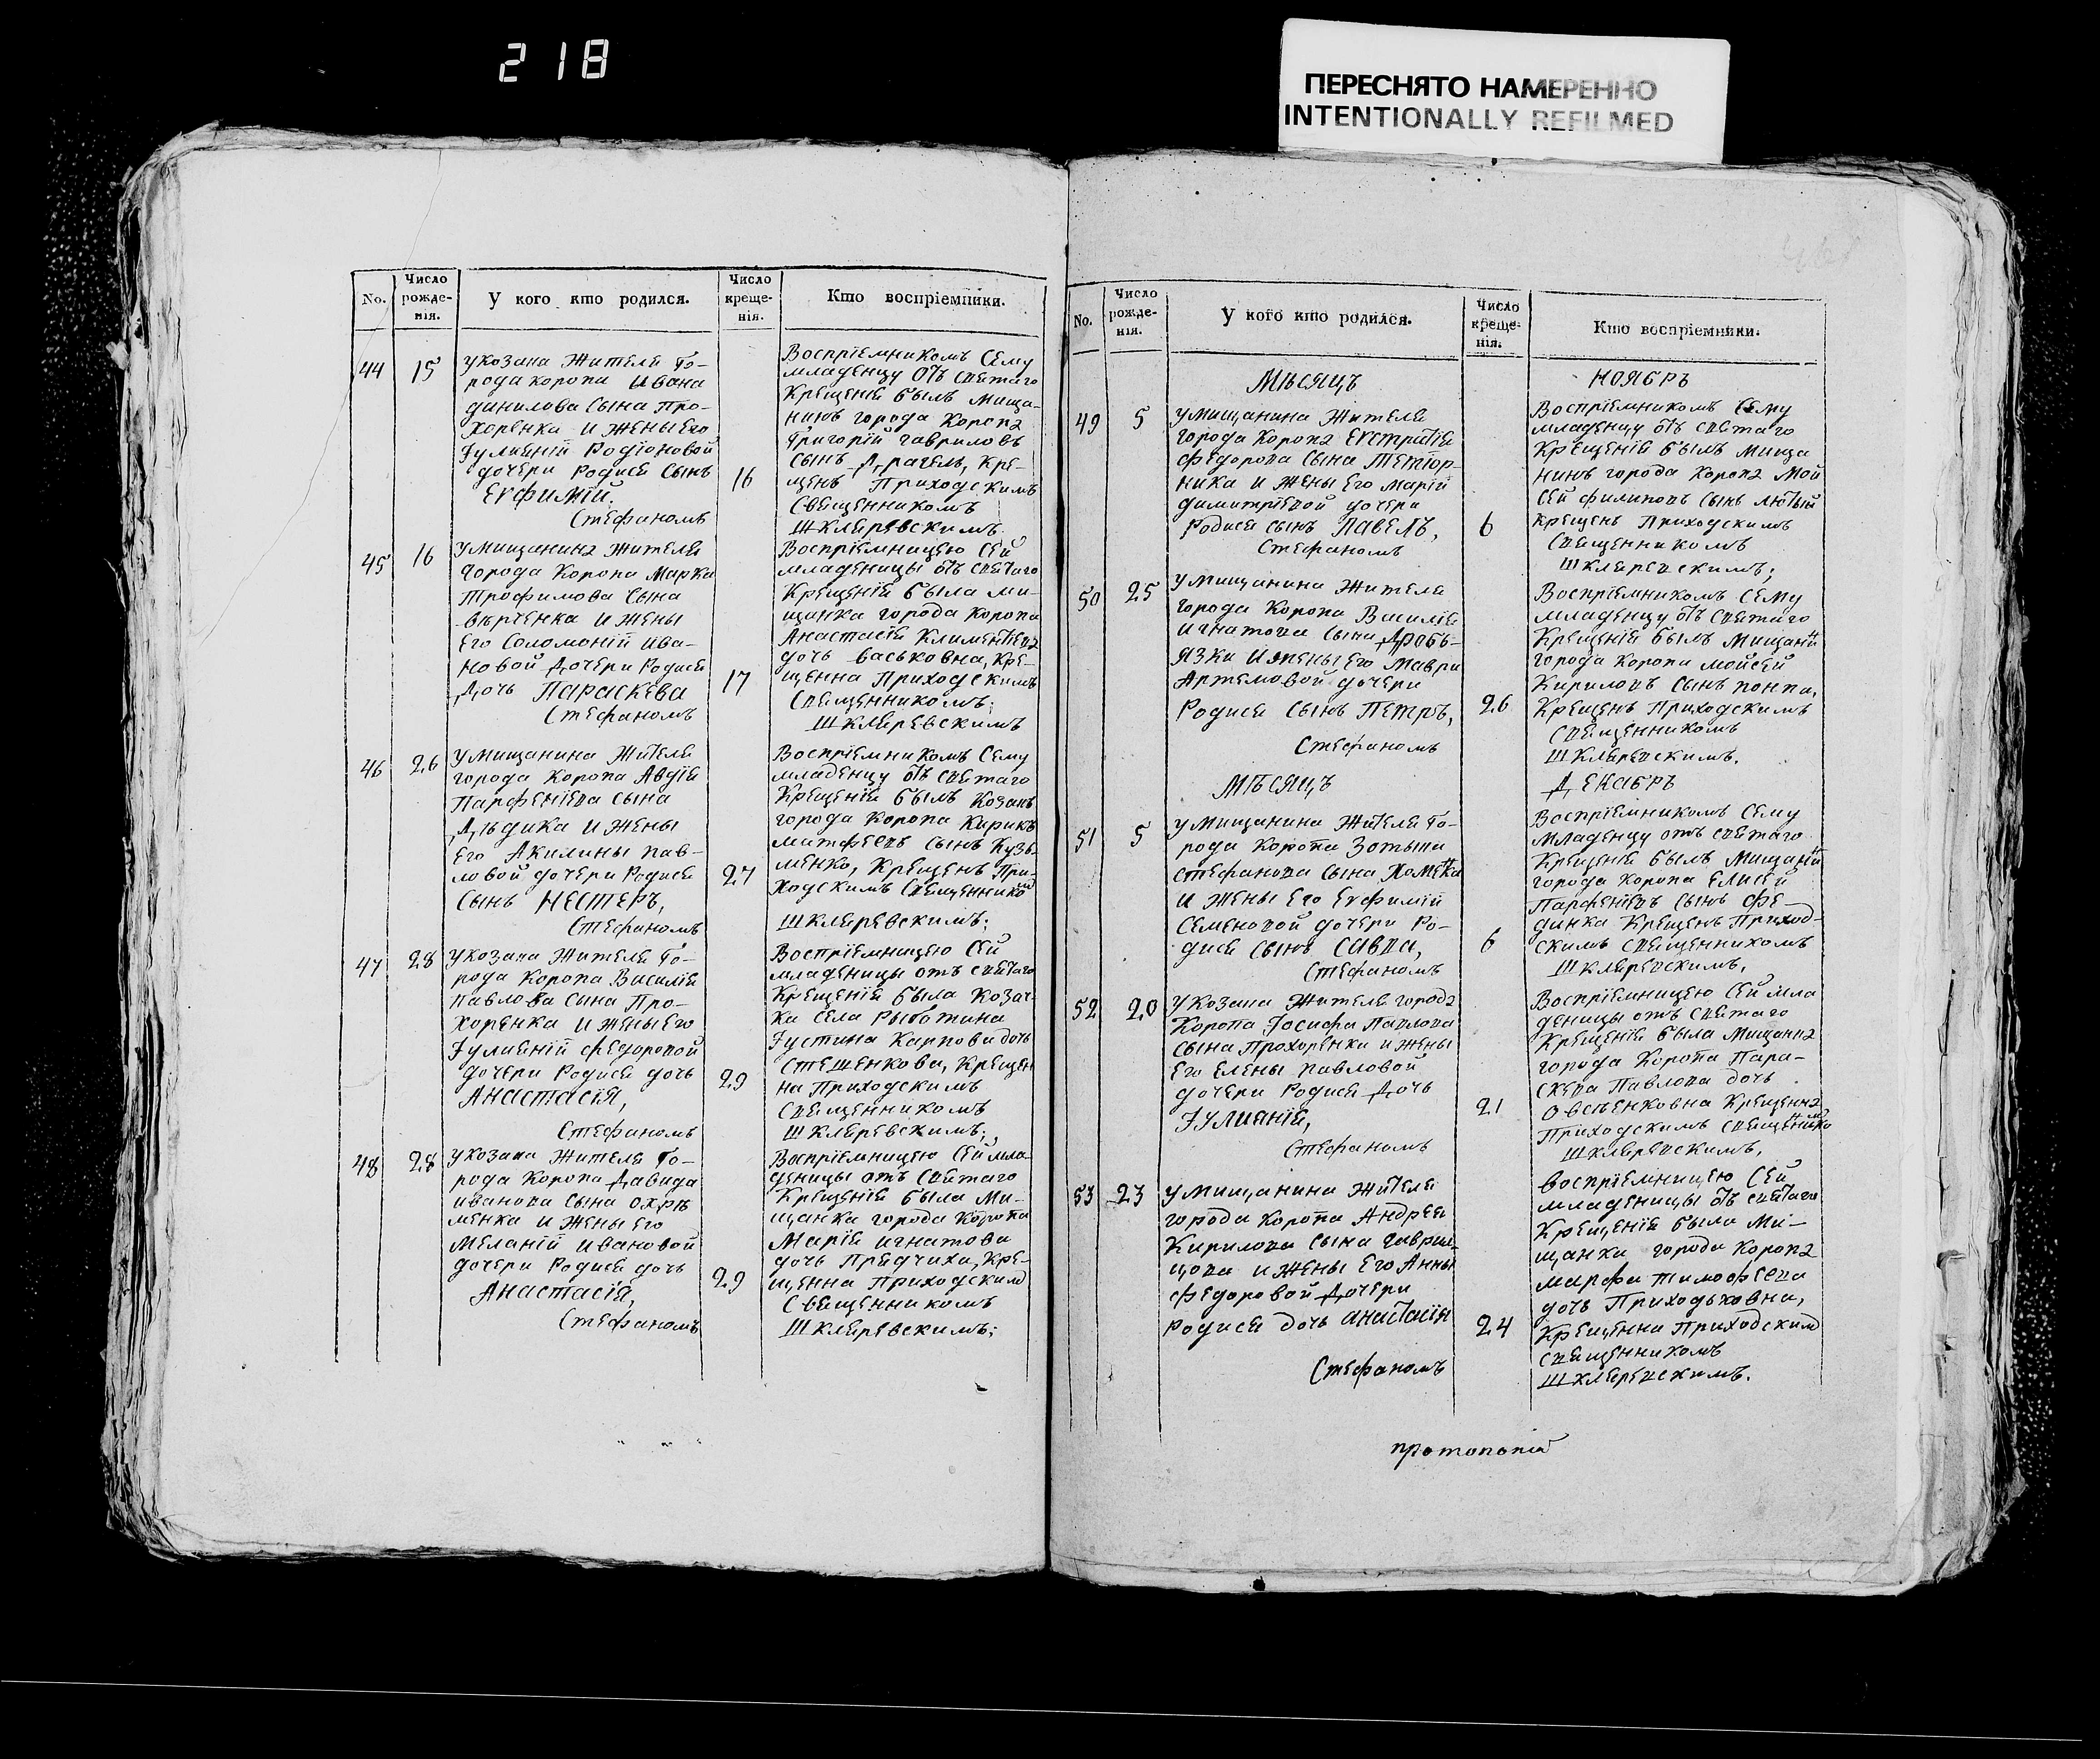 218
ПЕРЕСНЯТО НАМЕРЕННО
INTENTIONALLY REFILMED
No.
Число рожде- нія.
У кого кто родился.
Число креще- нія.
Кто воспріемники.
44 15
Укозака Жителя Го-
рода Коропа Ивана
данилова Сына Про-
хоренка И Жены Его
Іулианіи Родіоновой
дочери Родися Сынъ 16
Евфимій.
Стефаномъ
Воспріемникомъ Сему
младенцу Отъ Святаго
Крещенія былъ Мища-
нинъ города Коропа
Григорій гавриловъ
Сынъ Драгель, Кре-
щенъ Приходскимъ
Священникомъ
Шкляревскимъ.
45 16
Умищанина Жителя
Города Коропа Марка
Трофимова Сына
вѣрченка И Жены
Его Соломоніи Ива-
новой Дочери Родися
Дочь Параскева 17
Стефаномъ
Воспріемницею Сей
младеницы отъ Святаго
Крещенія была ми-
щанка города Коропа
Анастасія Климентіева
дочь васьковна, Кре-
щенна Приходскимъ
Священникомъ
Шкляревскимъ
46 26
Умищанина Жителя
города Коропа Авдія
Парфеніева Сына
Дѣдика И Жены
Его Акилины пав-
ловой дочери Родися 27
Сынъ НЕСТЕРЪ,
Стефаномъ
Воспріемникомъ Сему
младенцу отъ святаго
Крещенія былъ Козакъ
города Коропа Кирикъ
матфеевъ Сынъ Кузь-
менко, Крещенъ При-
ходскимъ Священником
Шкляревскимъ;
47 28
Укозака Жителя Го-
рода Коропа Василія
павлова Сына Про-
хоренка И Жены Его
Іулианіи федоровой
дочери Родися дочь 29
Анастасія,
Стефаномъ
Воспріемницею Сей
младеницы отъ святаго
Крещенія была Козач-
ка Села Рыботина
Іустина Карпова дочь
Стешенкова, Крещен
на Приходскимъ
Священникомъ
Шкляревскимъ;
48 28
Укозака Жителя Го-
рода Коропа Давида
иванова Сына охрѣ
менка И Жены Его
Меланіи Ивановой
дочери Родися дочь 29
Анастасія,
Стефаномъ
Воспріемницею Сей мла-
деницы отъ Святаго
Крещенія была Ми-
щанка города Коропа
Марія игнатова
дочь Предчиха, Кре-
щенна Приходским
Священникомъ
Шкляревскимъ;
No.
Число рожде- нія.
У кого кто родился.
Число креще- нія.
Кто воспріемники.
МѢСЯЦЪ НОЯБРЪ
49 5
Умищанина Жителя
города Коропа Евстратія
федорова Сына
ника И Жены Его Маріи
димитріевой дочери
Родися сынъ ПАВЕЛЪ, 6
Стефаномъ
Воспріемникомъ Сему
младенцу отъ святаго
Крещенія былъ Мища
нинъ города Коропа Мой
сей филиповъ Сынъ лютый
Крещенъ Приходскимъ
Священникомъ
Шкляревскимъ;
50 25
Умищанина Жителя
города Коропа Василія
игнатова Сына Дробь-
язки И жены Его Маври
Артемовой дочери
Родися Сынъ ПЕТРЪ, 26
Стефаномъ
Воспріемникомъ Сему
младенцу отъ Святаго
Крещенія былъ Мищанин
города Коропа мойсей
Кириловъ Сынъ
Крещенъ Приходскимъ
Священникомъ
Шкляревскимъ.
МѢСЯЦЪ ДЕКАБРЪ
51 5
Умищанина Жителя Го-
рода Коропа Зотыка
стефанова Сына Хоменка
И Жены Его Евфиміи
Семеновой дочери Ро-
дися Сынъ САВВА, 6
Стефаномъ
Воспріемникомъ Сему
младенцу отъ святаго
Крещенія былъ Мищанин
города Коропа Елисей
Парфеніевъ Сынъ Фе-
динка Крещенъ Приход-
скимъ священникомъ
Шкляревскимъ.
52 20
Укозака Жителя города
Коропа Іосифа Павлова
Сына Прохоренки и жены
Его Елены павловой
дочери Родися Дочь 21
Іулианія,
Стефаномъ
Воспріемницею Сей мла
деницы отъ святаго
Крещенія была Мищанка
города Коропа Пара-
скева Павлова дочь
Овсѣенковна Крещенна
Приходскимъ священником
Шкляревскимъ.
53 23
Умищанина Жителя
города Коропа Андрея
Кирилова Сына гаври
цова и Жены Его Анны
федоровой Дочери
Родися дочь Анастасія 24
Стефаномъ
Воспріемницею Сей
младеницы отъ святаго
Крещенія была Ми-
щанка города Коропа
марфа тимофеева
дочь Приходьковна,
Крещенна Приходским
священникомъ
Шкляревскимъ.
протопопій